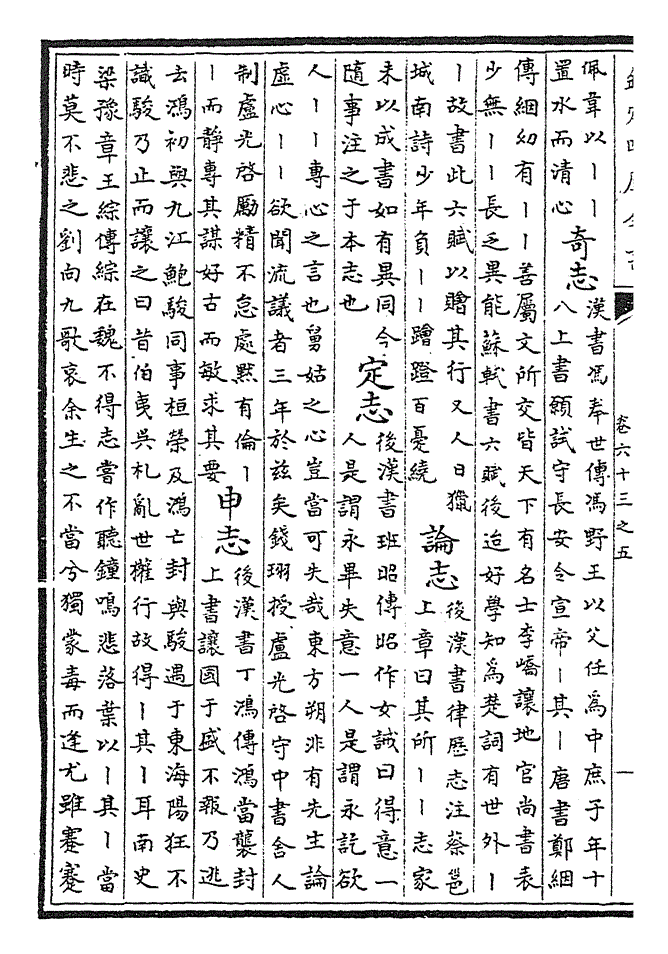 欽定四庫全書
卷六十三之五
一
佩韋以丨丨
置水而清心
奇志
漢書馮奉世傳馮野王以父任為中庶子年十
八上書願試守長安令宣帝丨其丨唐書鄭絪
傳絪幼有丨丨善屬文所交皆天下有名士李嶠讓地官尚書表
少無丨丨長乏異能蘇軾書六賦後迨好學知為楚詞有世外丨
丨故書此六賦以贈其行又人日獵
城南詩少年負丨丨蹭蹬百憂繞
論志
後漢書律歷志注蔡邕
上章曰其所丨丨志家
未以成書如有異同今
隨事注之于本志也
定志
後漢書班昭傳昭作女誡曰得意一
人是謂永畢失意一人是謂永訖欲
人丨丨專心之言也舅姑之心豈當可失哉東方朔非有先生論
虛心丨丨欲聞流議者三年於兹矣錢珝授盧光啓守中書舍人
制盧光啓勵精不怠處黙有倫丨
丨而静專其謀好古而敏求其要
申志
後漢書丁鴻傳鴻當襲封
上書讓國于盛不報乃逃
去鴻初與九江鮑駿同事桓榮及鴻亡封與駿遇于東海陽狂不
識駿乃止而讓之曰昔伯夷吳札亂世權行故得丨其丨耳南史
梁豫章王綜傳綜在魏不得志嘗作聽鐘鳴悲落葉以丨其丨當
時莫不悲之劉向九歌哀余生之不當兮獨蒙毒而逢尤雖蹇蹇